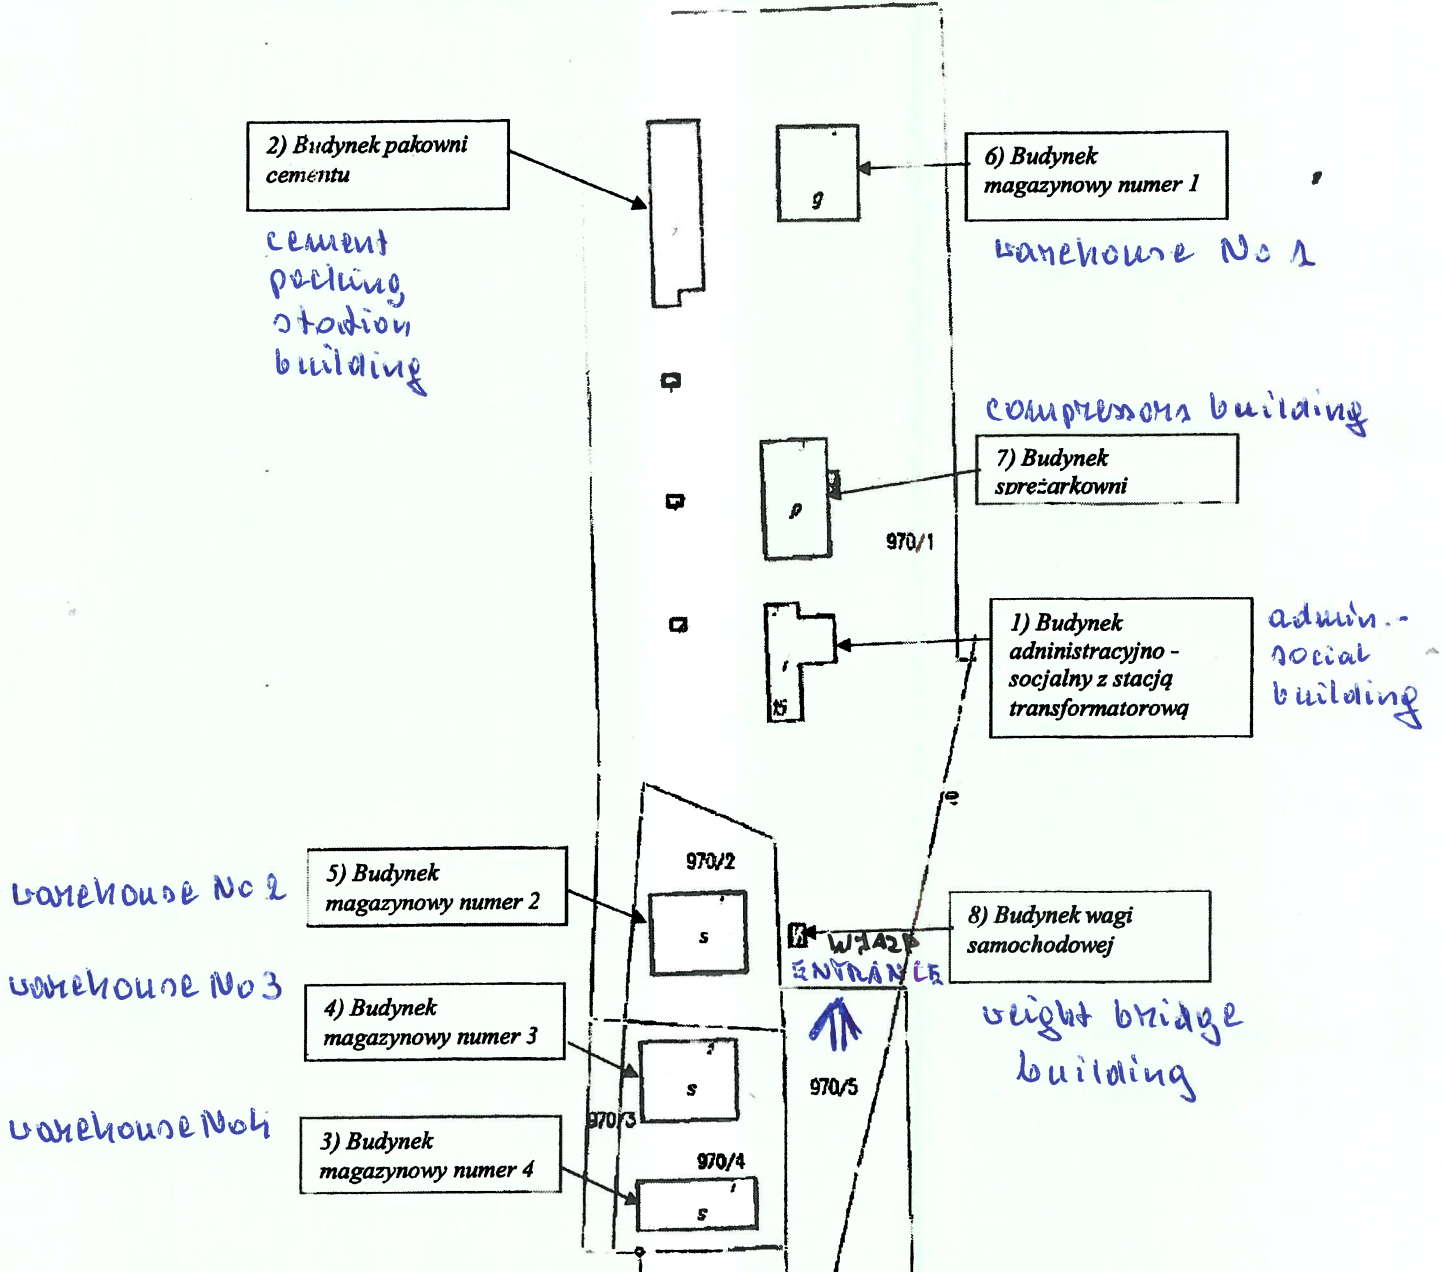 2) Budynek pakowni
cementu
cement
packing
station
building
6) Budynek
magazynowy numer 1
warehouse No 1
g
compressors building
7) Budynek
sprężarkowni
p
970/1
1) Budynek
adninistracyjno -
socjalny z stacją
transformatorową
admin.-
social
building
15
970/2
5) Budynek
magazynowy numer 2
warehouse No 2
s
8) Budynek wagi
samochodowej
WJAZD
ENTRANCE
weight bridge
building
warehouse No 3
4) Budynek
magazynowy numer 3
s
970/5
970/3
warehouse No 4
3) Budynek
magazynowy numer 4
970/4
s